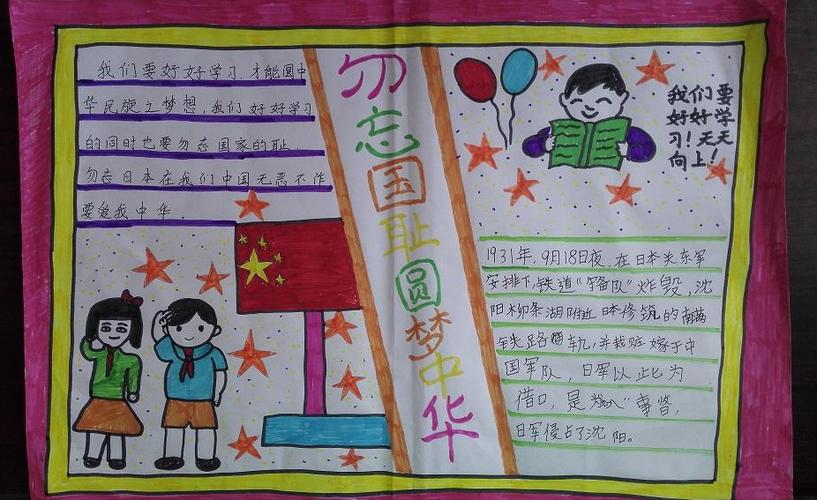 我们要好好学习,才能圆中
华民族之梦想,我们好好学习
的同时也要勿忘国家的耻.
勿忘日本在我们中国无恶不作
要爱我中华.
勿忘国耻圆梦中华
我们要
好好学
习!天天
向上!
1931年,9月18日夜,在日本关东军
安排下,铁道"队"炸毁,沈
阳柳条湖附近日本修筑的南满
铁路轨,并栽赃嫁于中
国军队,日军以此为
借口,是"事"
日军侵占了沈阳。